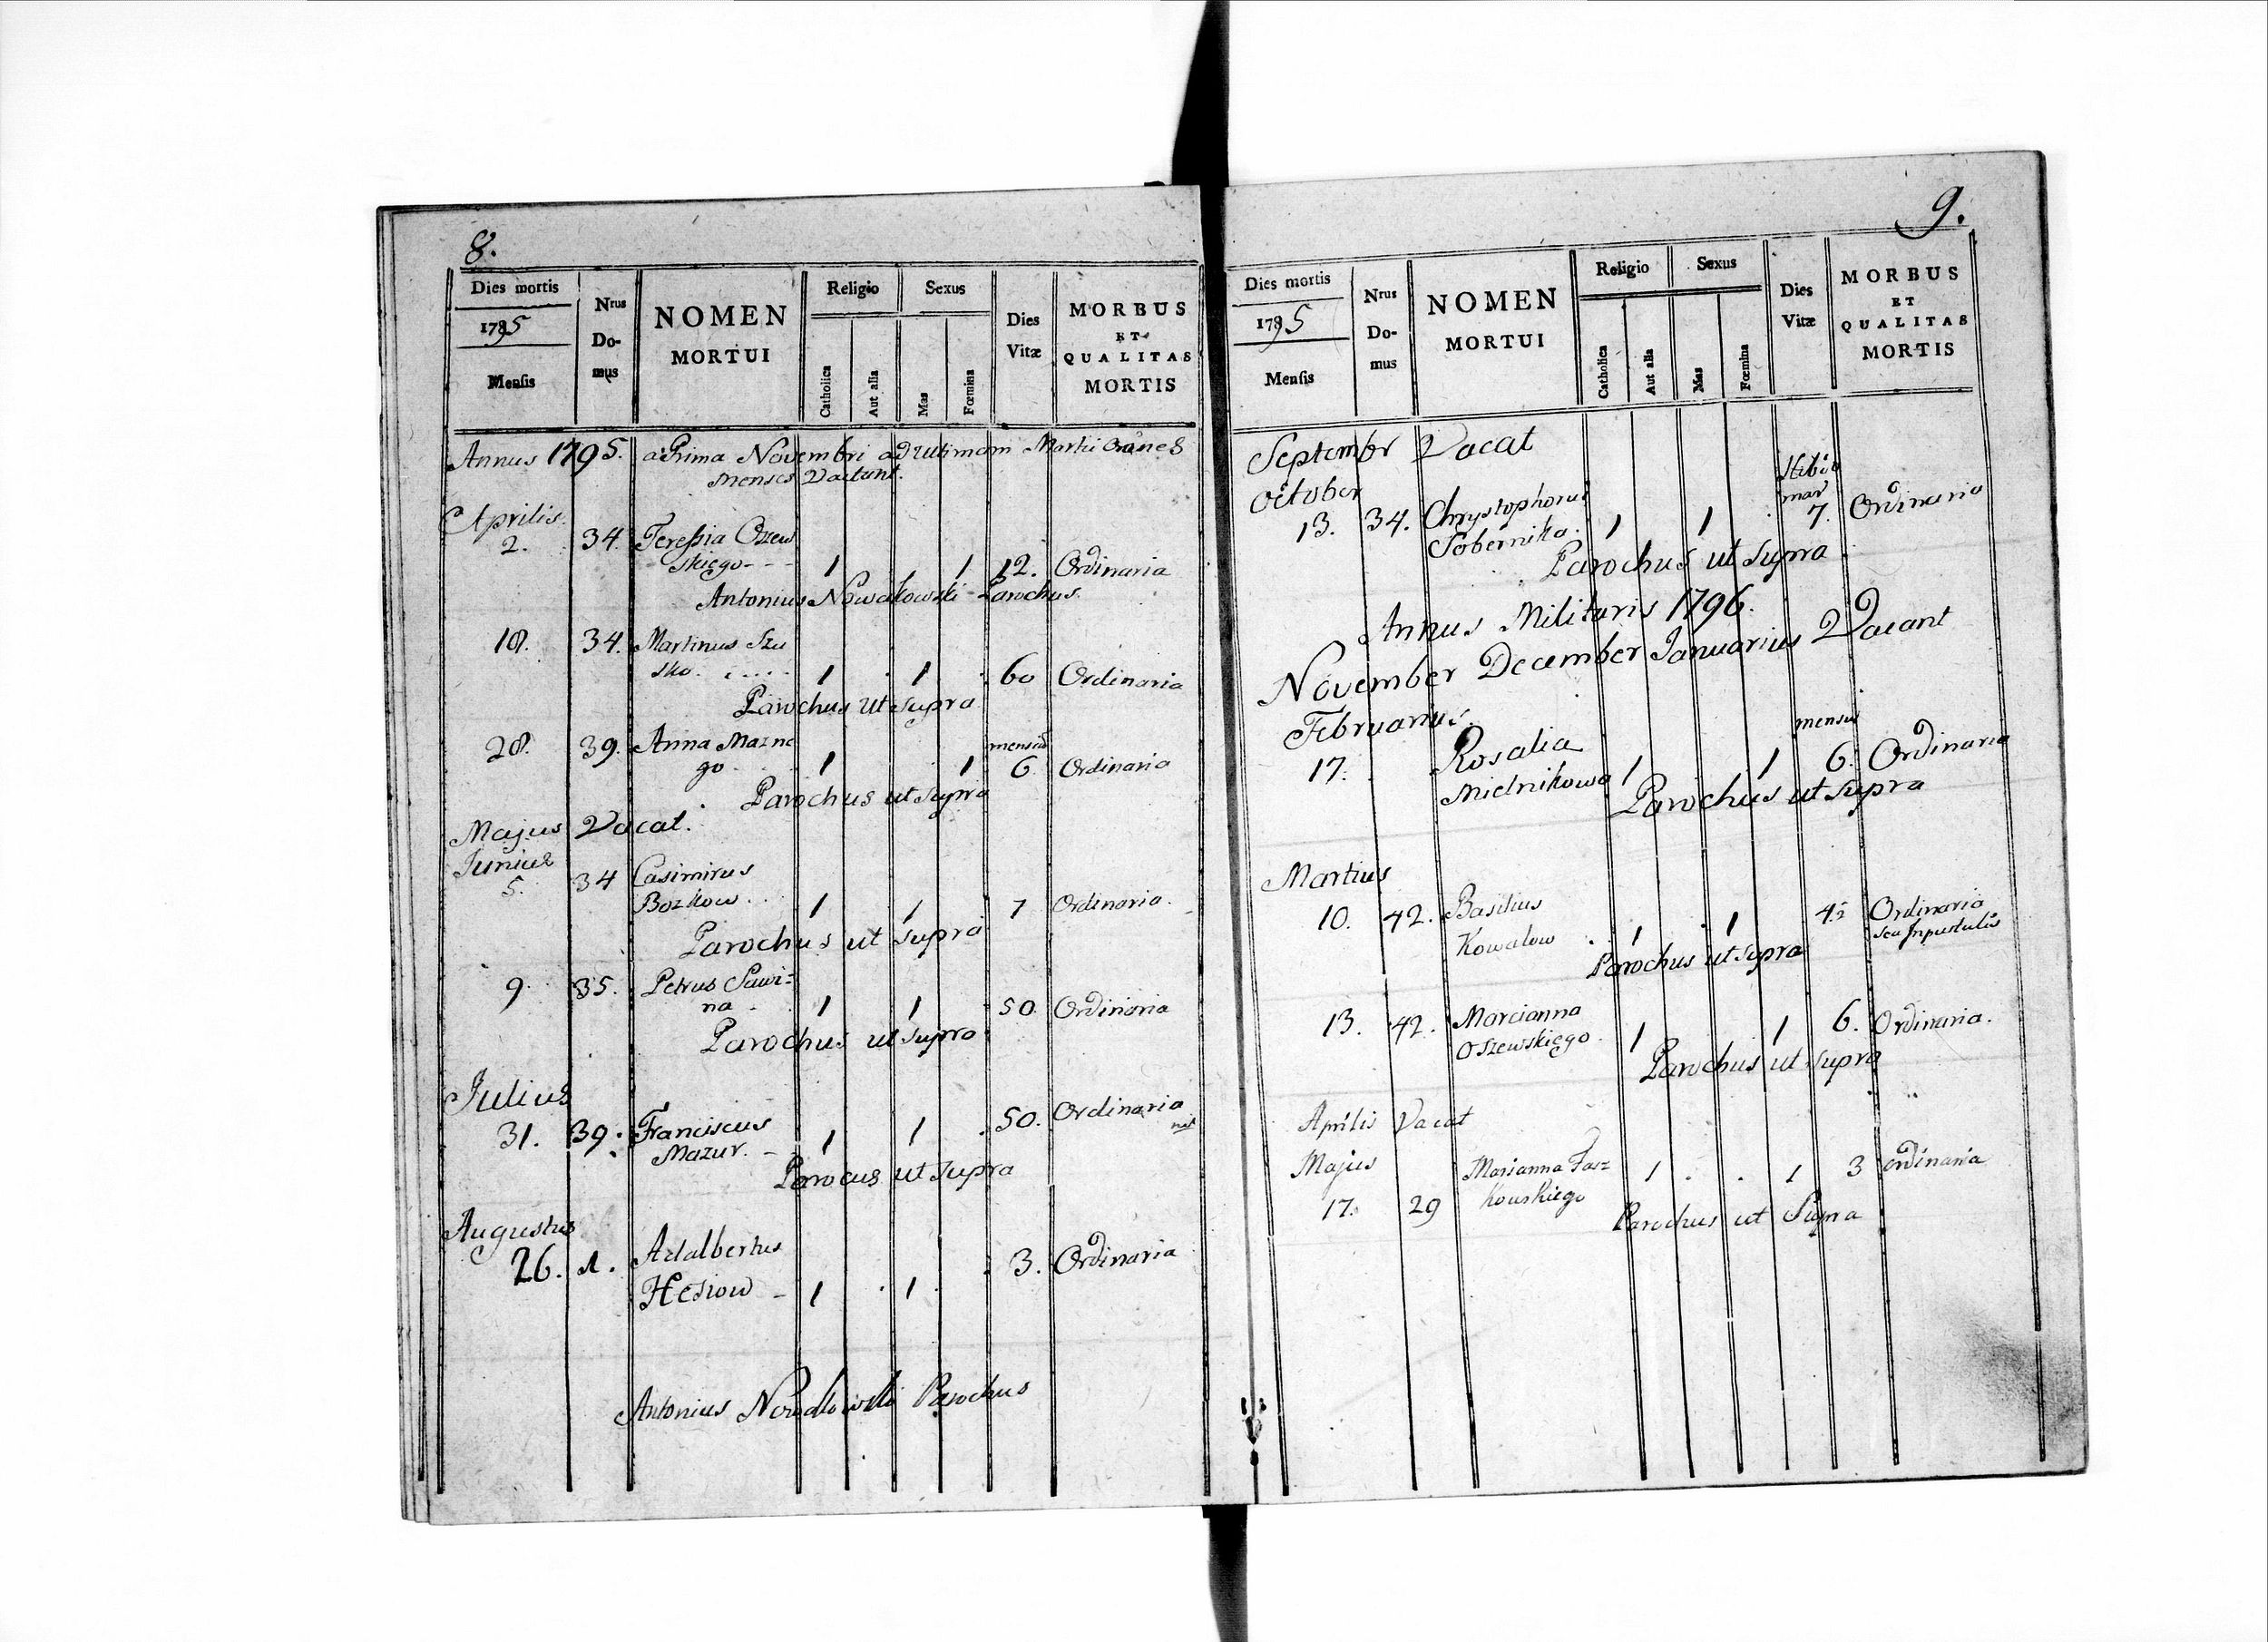 8.
Dies mortis
1795
Mensis
Nrus
Do-
mus
NOMEN
MORTUI
Religio
Catholica
Aut alia
Sexus
Mas
Fœmina
Dies
Vitæ
MORBUS
ET
QUALITAS
MORTIS
Annus 1795. a Prima Novembri ad ultimam Martii omnes
menses Vacant.
Aprilis
2. 34. Teressia Oszew
skiego - - - 1 1 12. Ordinaria
Antonius Nowakowski Parochus
18. 34. Martinus Szu
sko . . . . . 1 1 60 Ordinaria
Parochus ut supra
28. 39. Anna Mazne mensiu
go 1 1 6 Ordinaria
Parochus ut supra
Majus Vacat.
Junius
5. 34 Casimirus
Bozkow . . 1 1 7 Ordinaria.
Parochus ut supra
9. 35. Petrus Sawi=
na 1 1 50. Ordinaria
Parochus ut supra
Julius
31. 39. Franciscus 1 1 50. Ordinaria
Mazur. -
Parocus ut supra
Augustus
26. 1. Adalbertus 3. Ordinaria
Hesiow - 1 1
Antonius Nowakowski Parochus
9.
Dies mortis
1795
Mensis
Nrus
Do-
mus
NOMEN
MORTUI
Religio
Catholica
Aut alia
Sexus
Mas
Fœmina
Dies
Vitæ
MORBUS
ET
QUALITAS
MORTIS
Septembr Vacat
October
13. 34. Chrystophorus 7. Ordinaria
Sobernika. 1 1
Parochus ut supra
Annus Militaris 1796.
November December Januarius Vacant
Februarius.
17. Rosalia mensiu 6. Ordinaria
Mielnikowa 1 1
Parochus ut supra
Martius
10. 42. Basilius Ordinaria
Kowalow 1 1
Parochus ut supra
13. 42. Marcianna 6. Ordinaria.
Oszewskiego. 1 1
Parochus ut supra
Aprilis Vacat
Majus Marianna Fasz 1 1 3 ordinaria
17. 29 kowskiego
Parochus ut Supra